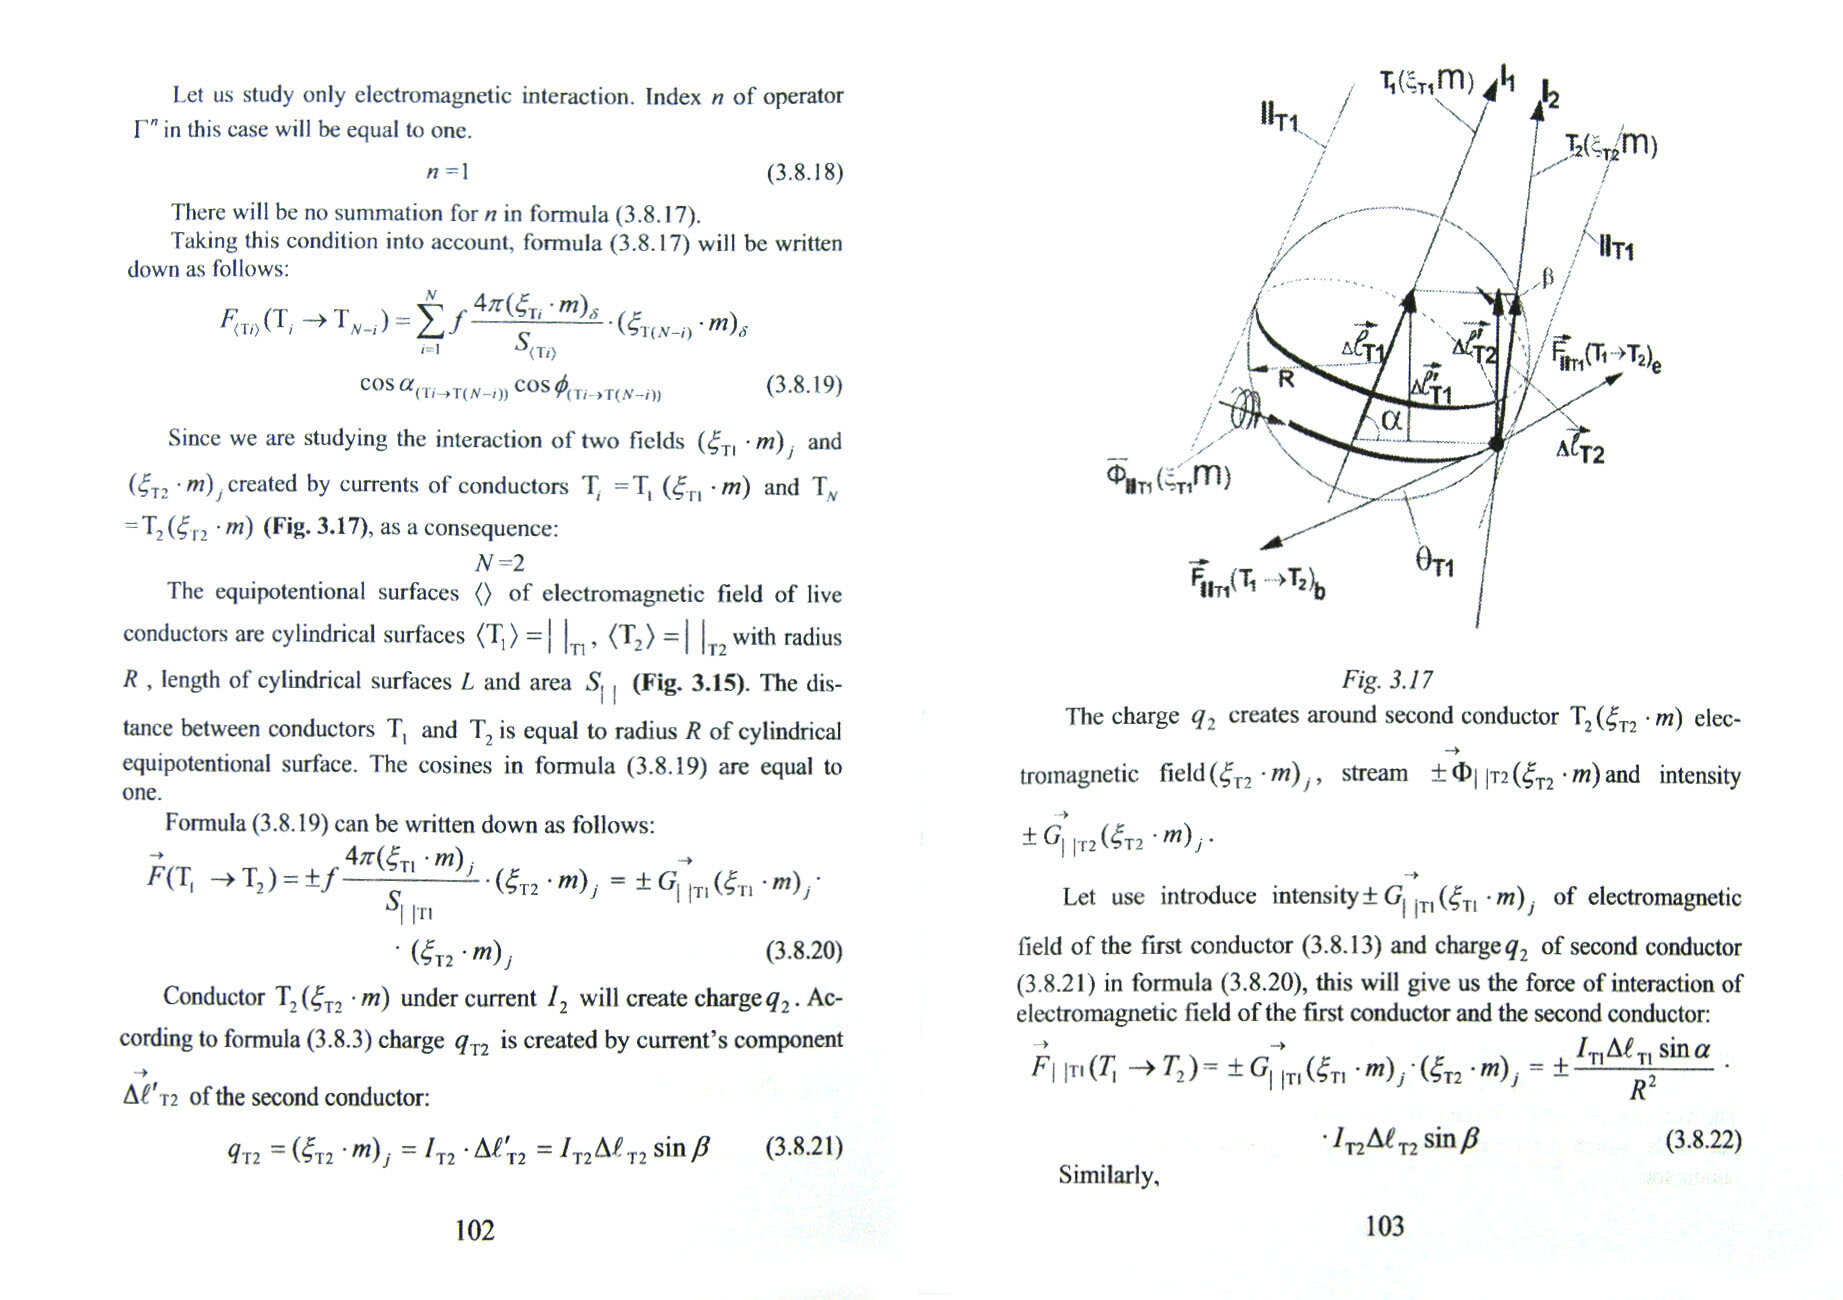 Let us study only electromagnetic interaction. Index n of operator
Γⁿ in this case will be equal to one.
n =1 (3.8.18)
There will be no summation for n in formula (3.8.17).
Taking this condition into account, formula (3.8.17) will be written
down as follows:
F_{⟨Ti⟩}(T_i → T_{N−i}) = \sum_{i=1}^{N} f \frac{4π(ξ_{Ti} · m)_δ}{S_{⟨Ti⟩}} · (ξ_{T(N−i)} · m)_δ
cos α_{(Ti→T(N−i))} cos ϕ_{(Ti→T(N−i))} (3.8.19)
Since we are studying the interaction of two fields (ξ_{T1} · m)_j and
(ξ_{T2} · m)_j created by currents of conductors T_i =T_1 (ξ_{T1} · m) and T_N
=T_2(ξ_{T2} · m) (Fig. 3.17), as a consequence:
N =2
The equipotentional surfaces ⟨⟩ of electromagnetic field of live
conductors are cylindrical surfaces ⟨T_1⟩ =| |_{T1}, ⟨T_2⟩ =| |_{T2} with radius
R , length of cylindrical surfaces L and area S_{| |} (Fig. 3.15). The dis-
tance between conductors T_1 and T_2 is equal to radius R of cylindrical
equipotentional surface. The cosines in formula (3.8.19) are equal to
one.
Formula (3.8.19) can be written down as follows:
\vec{F}(T_1 → T_2) = ±f \frac{4π(ξ_{T1} · m)_j}{S_{| |T1}} · (ξ_{T2} · m)_j = ± \vec{G}_{| |T1}(ξ_{T1} · m)_j ·
· (ξ_{T2} · m)_j (3.8.20)
Conductor T_2(ξ_{T2} · m) under current I_2 will create charge q_2. Ac-
cording to formula (3.8.3) charge q_{T2} is created by current's component
\vec{Δℓ'}_{T2} of the second conductor:
q_{T2} = (ξ_{T2} · m)_j = I_{T2} · Δℓ'_{T2} = I_{T2}Δℓ_{T2} sin β (3.8.21)
102
T_1(ξ_{T1}m)
I_1
I_2
||_{T1}
T_2(ξ_{T2}m)
||_{T1}
β
\vec{Δℓ}_{T1}
\vec{Δℓ'}_{T2}
\vec{F}_{||T1}(T_1→T_2)_e
R
\vec{Δℓ'}_{T1}
α
\vec{Δℓ}_{T2}
Φ_{||T1}(ξ_{T1}m)
θ_{T1}
\vec{F}_{||T1}(T_1 →T_2)_b
Fig. 3.17
The charge q_2 creates around second conductor T_2(ξ_{T2} · m) elec-
tromagnetic field(ξ_{T2} · m)_j, stream ±\vec{Φ}_{| |T2}(ξ_{T2} · m) and intensity
± \vec{G}_{| |T2}(ξ_{T2} · m)_j.
Let use introduce intensity± \vec{G}_{| |T1}(ξ_{T1} · m)_j of electromagnetic
field of the first conductor (3.8.13) and charge q_2 of second conductor
(3.8.21) in formula (3.8.20), this will give us the force of interaction of
electromagnetic field of the first conductor and the second conductor:
\vec{F}_{| |T1}(T_1 → T_2) = ± \vec{G}_{| |T1}(ξ_{T1} · m)_j · (ξ_{T2} · m)_j = ± \frac{I_{T1}Δℓ_{T1} sin α}{R^2} ·
· I_{T2}Δℓ_{T2} sin β (3.8.22)
Similarly,
103